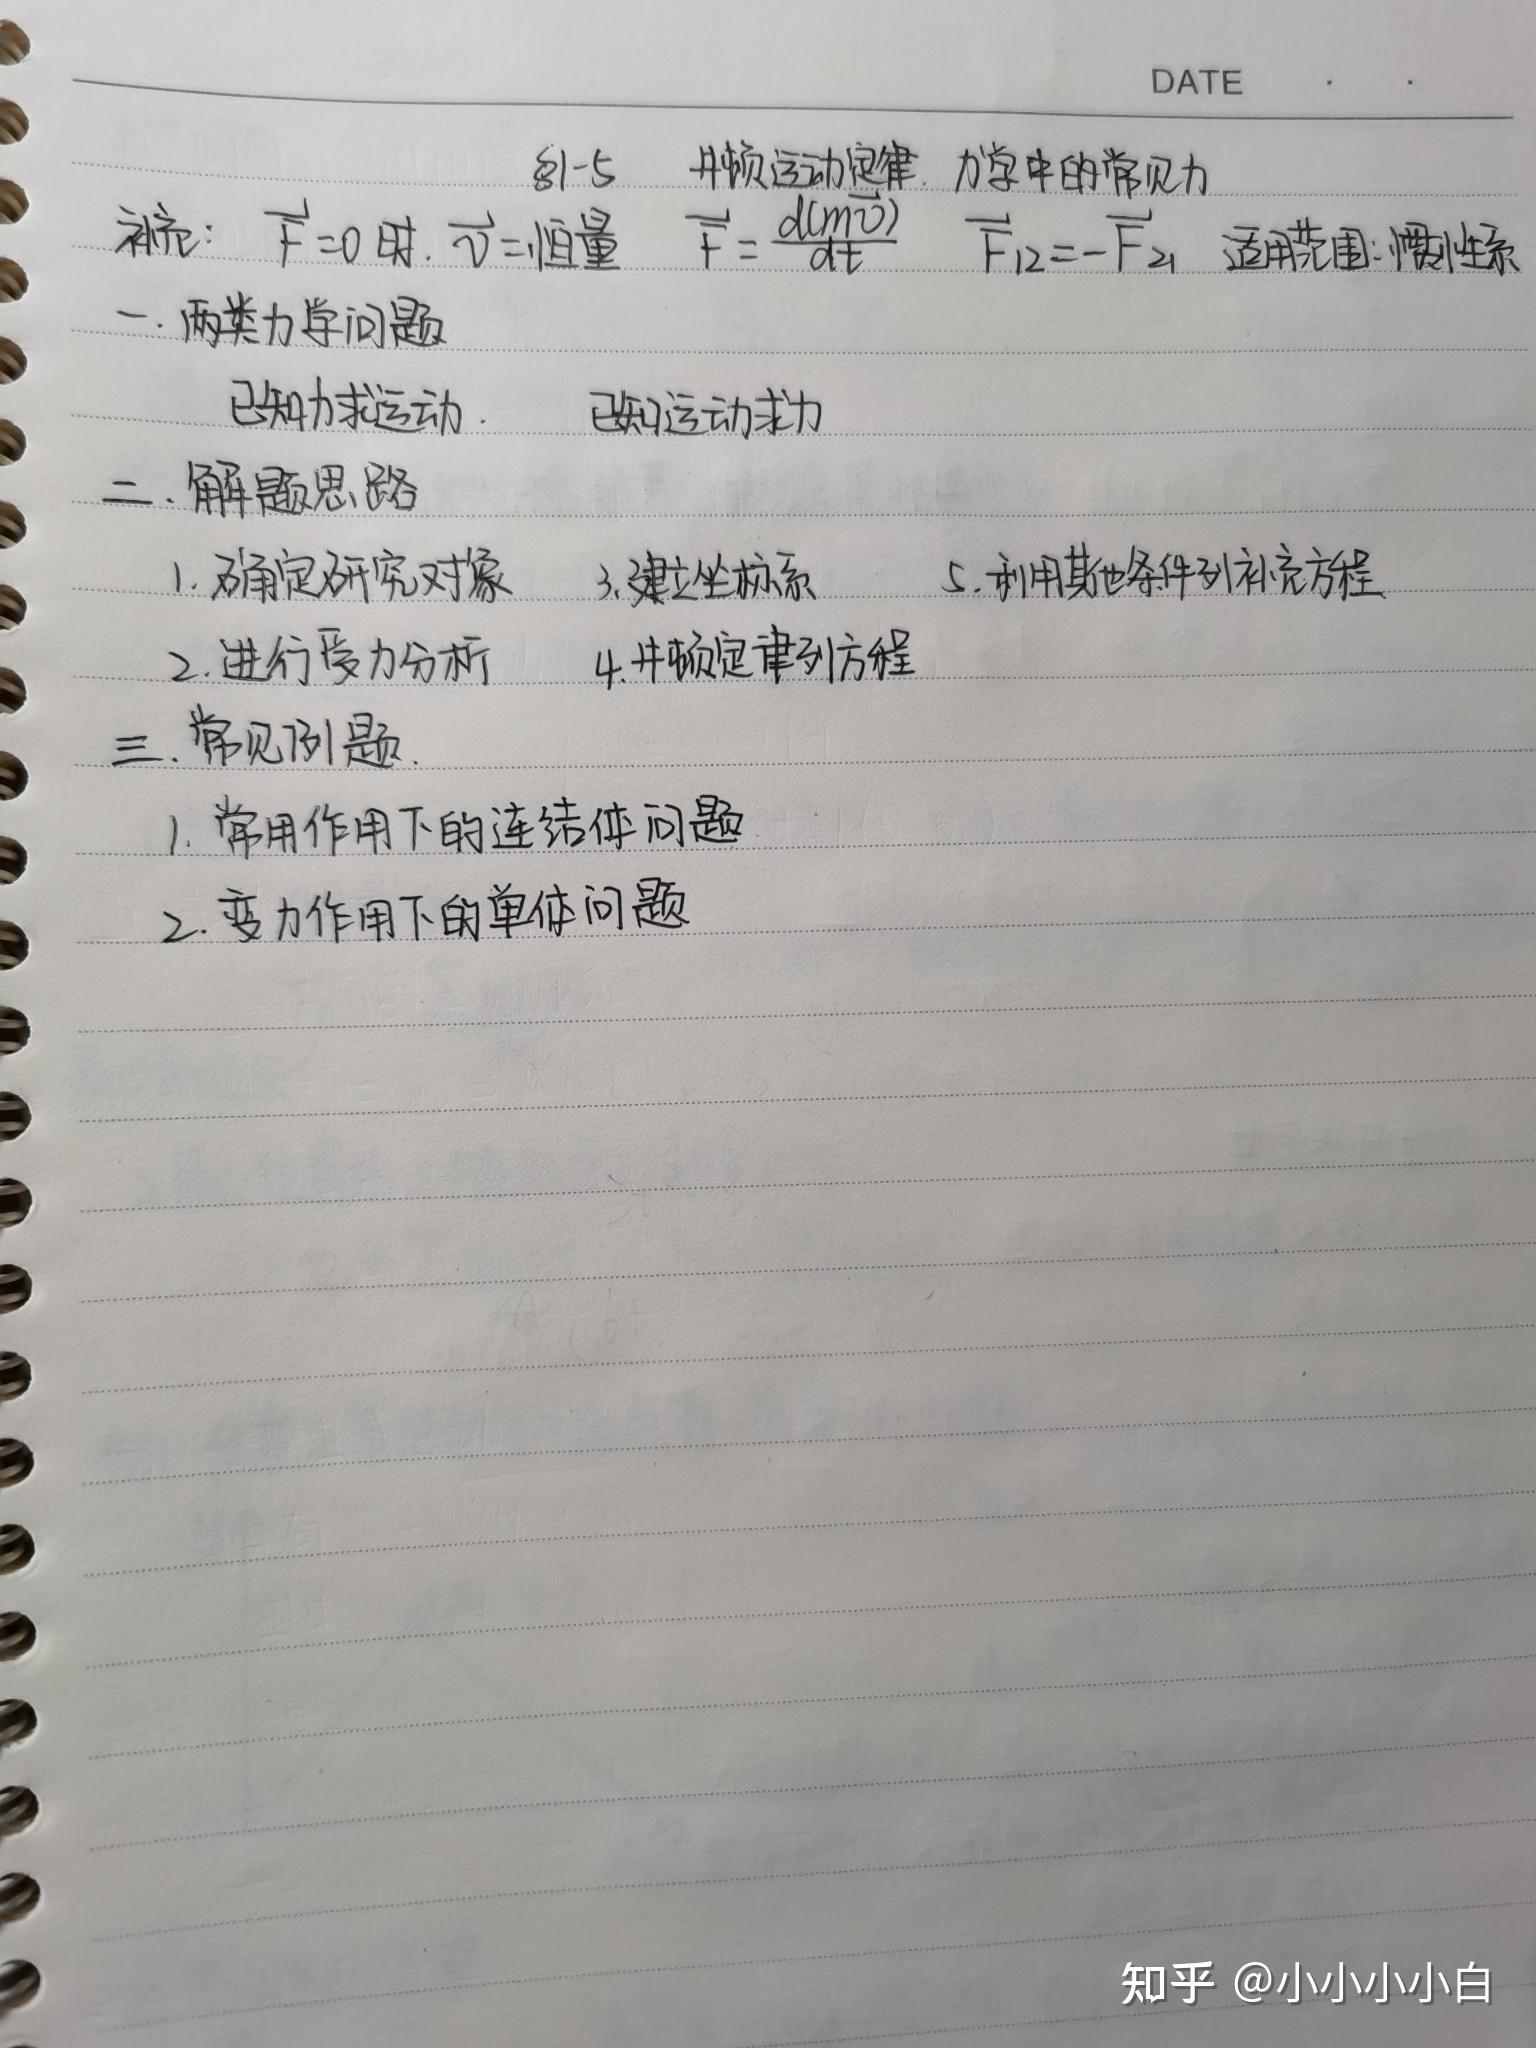 DATE · ·
§1-5 牛顿运动定律. 力学中的常见力
补充: F⃗=0时. v⃗=恒量 F⃗=d(mv⃗)/dt F⃗12=-F⃗21 适用范围:惯性系
一.两类力学问题
已知力求运动. 已知运动求力
二.解题思路
1.确定研究对象 3.建立坐标系 5.利用其他条件列补充方程
2.进行受力分析 4.牛顿定律列方程
三.常见例题.
1.常用作用下的连结体问题
2.变力作用下的单体问题
知乎 @小小小小白